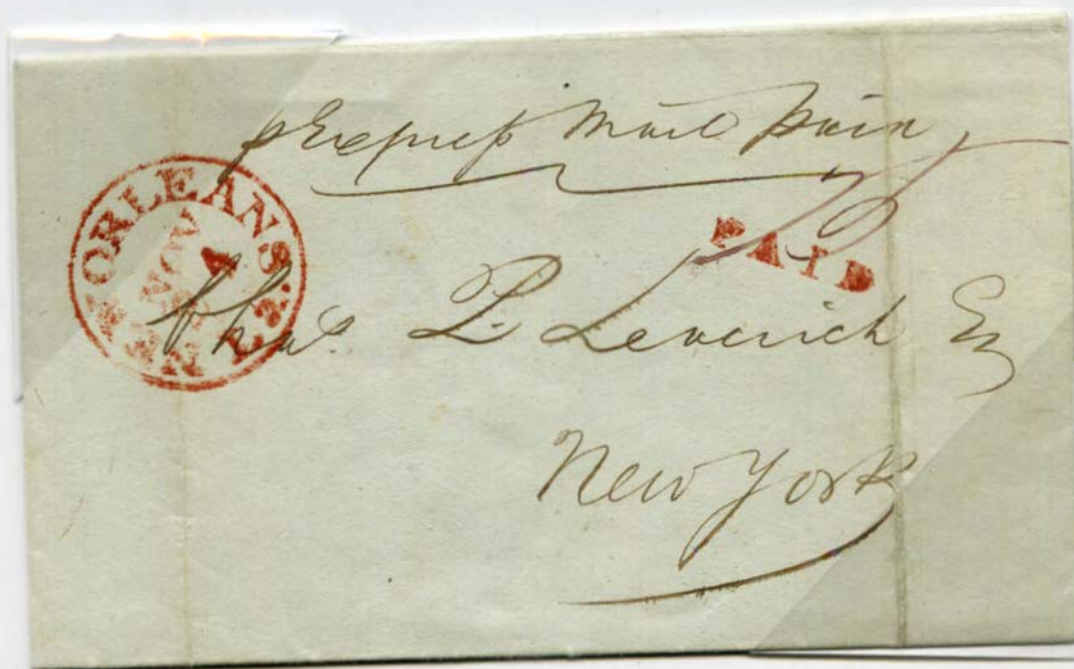 p Express Mail Paid
NEW ORLEANS. LA.
NOV
4
PAID
Chas. P. Leverich Es
New York